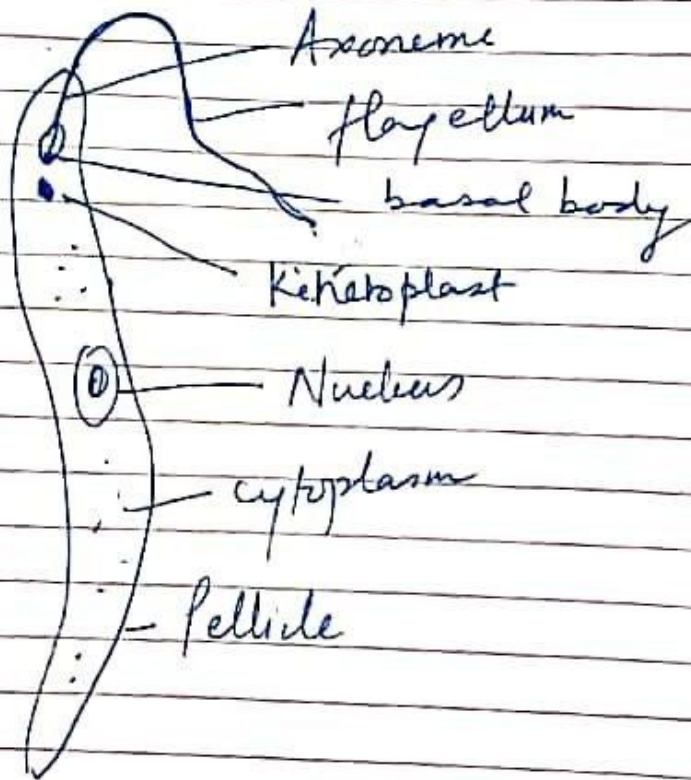 Axoneme
flagellum
basal body
Kinetoplast
Nucleus
cytoplasm
Pellicle